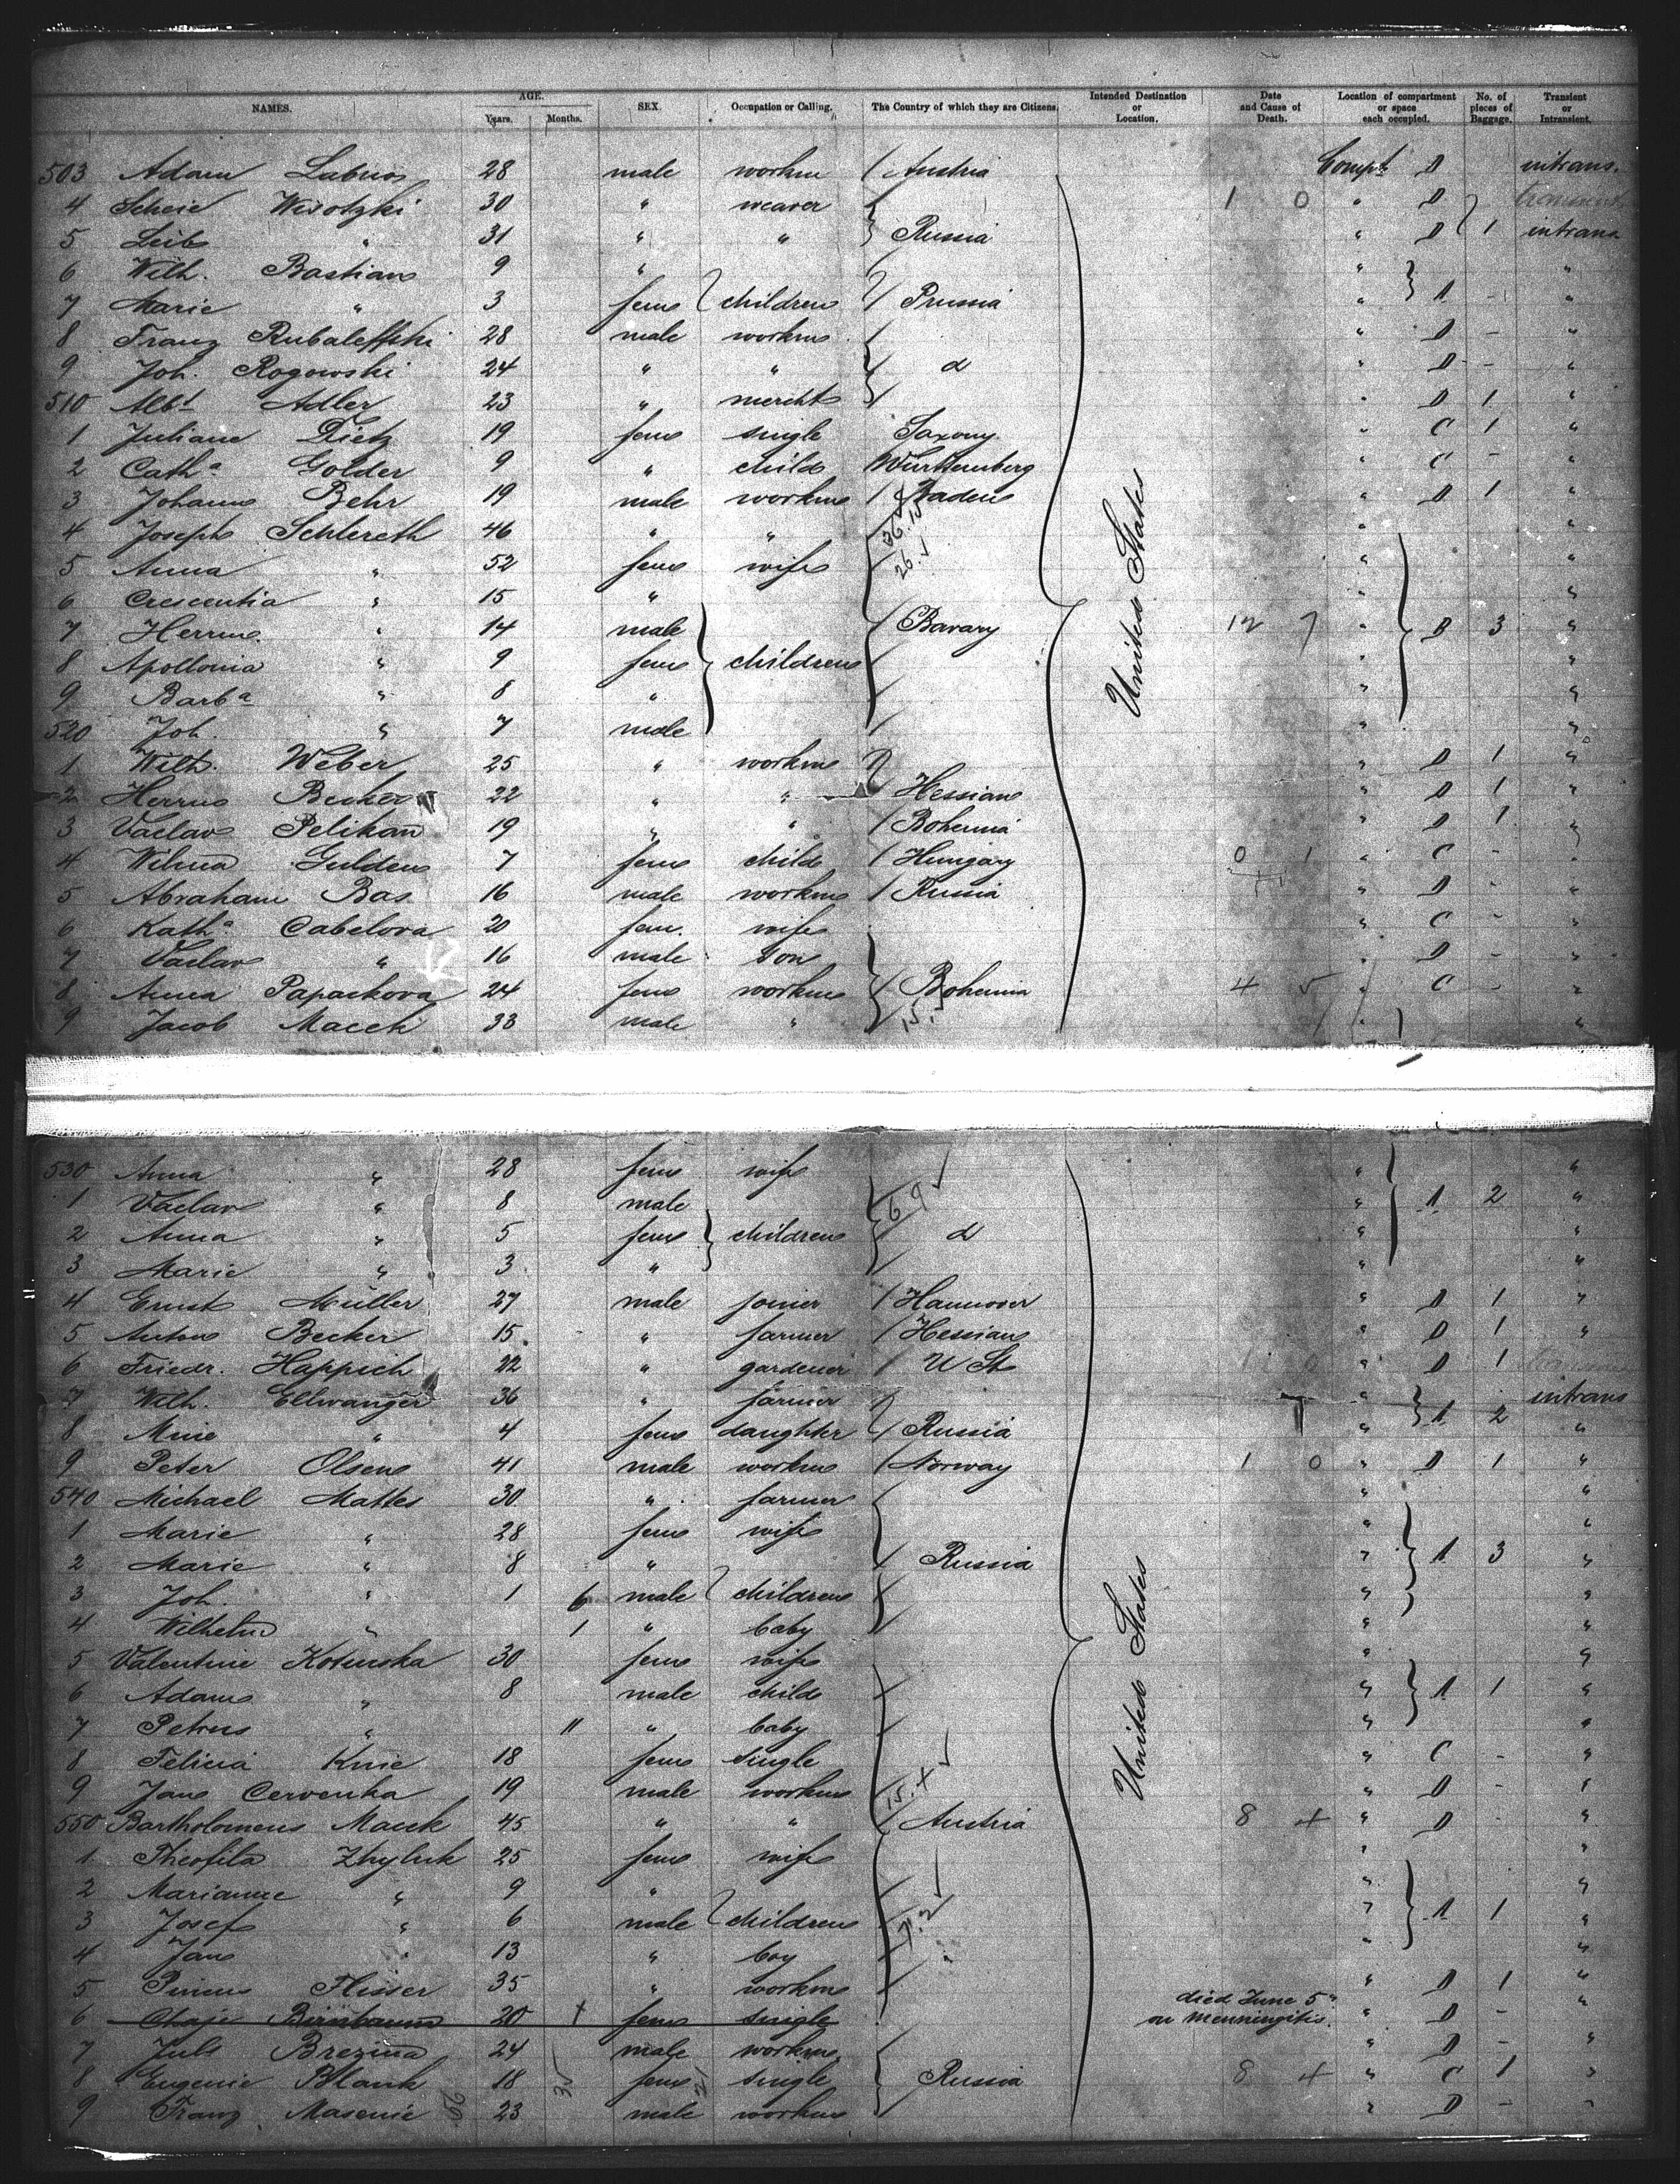 NAMES. AGE. Years. Months. SEX. Occupation or Calling. The Country of which they are Citizens. Intended Destination or Location. Date and Cause of Death. Location of compartment or space each occupied. No. of pieces of Baggage. Transient or Intransient.
503 Adam 28 male workm / Austria Compt D intrans.
4 Wisotzki 30 " weaver 1 0 " D
5 Leib " 31 " " Russia " D 1 intrans
6 Wilh. Bastian 9 " " "
7 Marie " 3 fem children / Prussia " A - "
8 Franz 28 male workm / " D - "
9 Joh. Rogowski 24 " " / d " D - "
510 Albt Adler 23 " mercht / " D 1 "
1 Juliane Dietz 19 fem single Saxony " C 1 "
2 Catha Golder 9 " child Württemberg " C - "
3 Johann Behr 19 male workm / Baden " D 1 "
4 Joseph Schlereth 46 " " " "
5 Anna " 52 fem wife " "
6 Crescentia " 15 " " "
7 Herrm. " 14 male / Bavary 12 7 " B 3 "
8 Apollonia " 9 fem children / " "
9 Barba " 8 " / " "
520 Joh. " 7 male / " "
1 Wilh. Weber 25 " workm " D 1 "
2 Herrm Becker 22 " " / Hessian " D 1 "
3 Vaclav Pelikan 19 " " / Bohemia " D 1 "
4 Wilma Gulden 7 fem child / Hungary 0 1 " C - "
5 Abraham Bas 16 male workm / Russia " D - "
6 Katha Cabelova 20 fem. wife " C - "
7 Vaclav " 16 male son " D - "
8 Anna Papackova 24 fem workm / Bohemia 4 5 " C - "
9 Jacob Macek 33 male " " "
United States
530 Anna " 28 fem wife " "
1 Vaclav " 8 male " A 2 "
2 Anna " 5 fem children / d " "
3 Marie " 3 " / " "
4 Ernst Müller 27 male joiner / Hannover " D 1 "
5 Anton Becker 15 " farmer / Hessian " D 1 "
6 Friedr. Happich 22 " gardener / U St 1 0 " D 1
7 Wilh. Ellwanger 36 " farmer " intrans
8 Mine " 4 fem daughter / Russia " A 2 "
9 Peter Olsen 41 male workm / Norway 1 0 " D 1 "
540 Michael Mattes 30 " farmer " "
1 Marie " 28 fem wife " "
2 Marie " 8 " / Russia " A 3 "
3 Joh. " 1 6 male children / " "
4 Wilhelm " 1 " baby / " "
5 Valentine Kotenska 30 fem wife " "
6 Adam " 8 male child / " A 1 "
7 Petrus " 11 " baby / " "
8 Felicia Knie 18 fem single " C - "
9 Jan Cervenka 19 male workm " D - "
550 Bartholomeus Macek 45 " " / Austria 8 4 " D - "
1 Theofila Zhyluk 25 fem wife " "
2 Marianne " 9 " / " "
3 Josef " 6 male children / " A 1 "
4 Jan " 13 " boy / " "
5 Pincus Flisser 35 " workm / " D 1 "
6 Chaje Birnbaum 20 fem single died June 5" on Menningitis. " D - "
7 Brezina 24 male workm " D - "
8 Eugenie Blank 18 fem single Russia 8 4 " C 1 "
9 Franz Masenie 23 male workm " D - "
United States